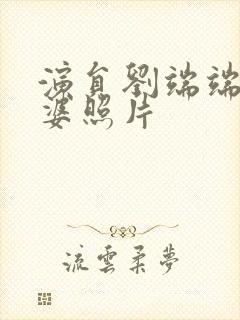 演員劉端端
婆照片
流雲柔夢